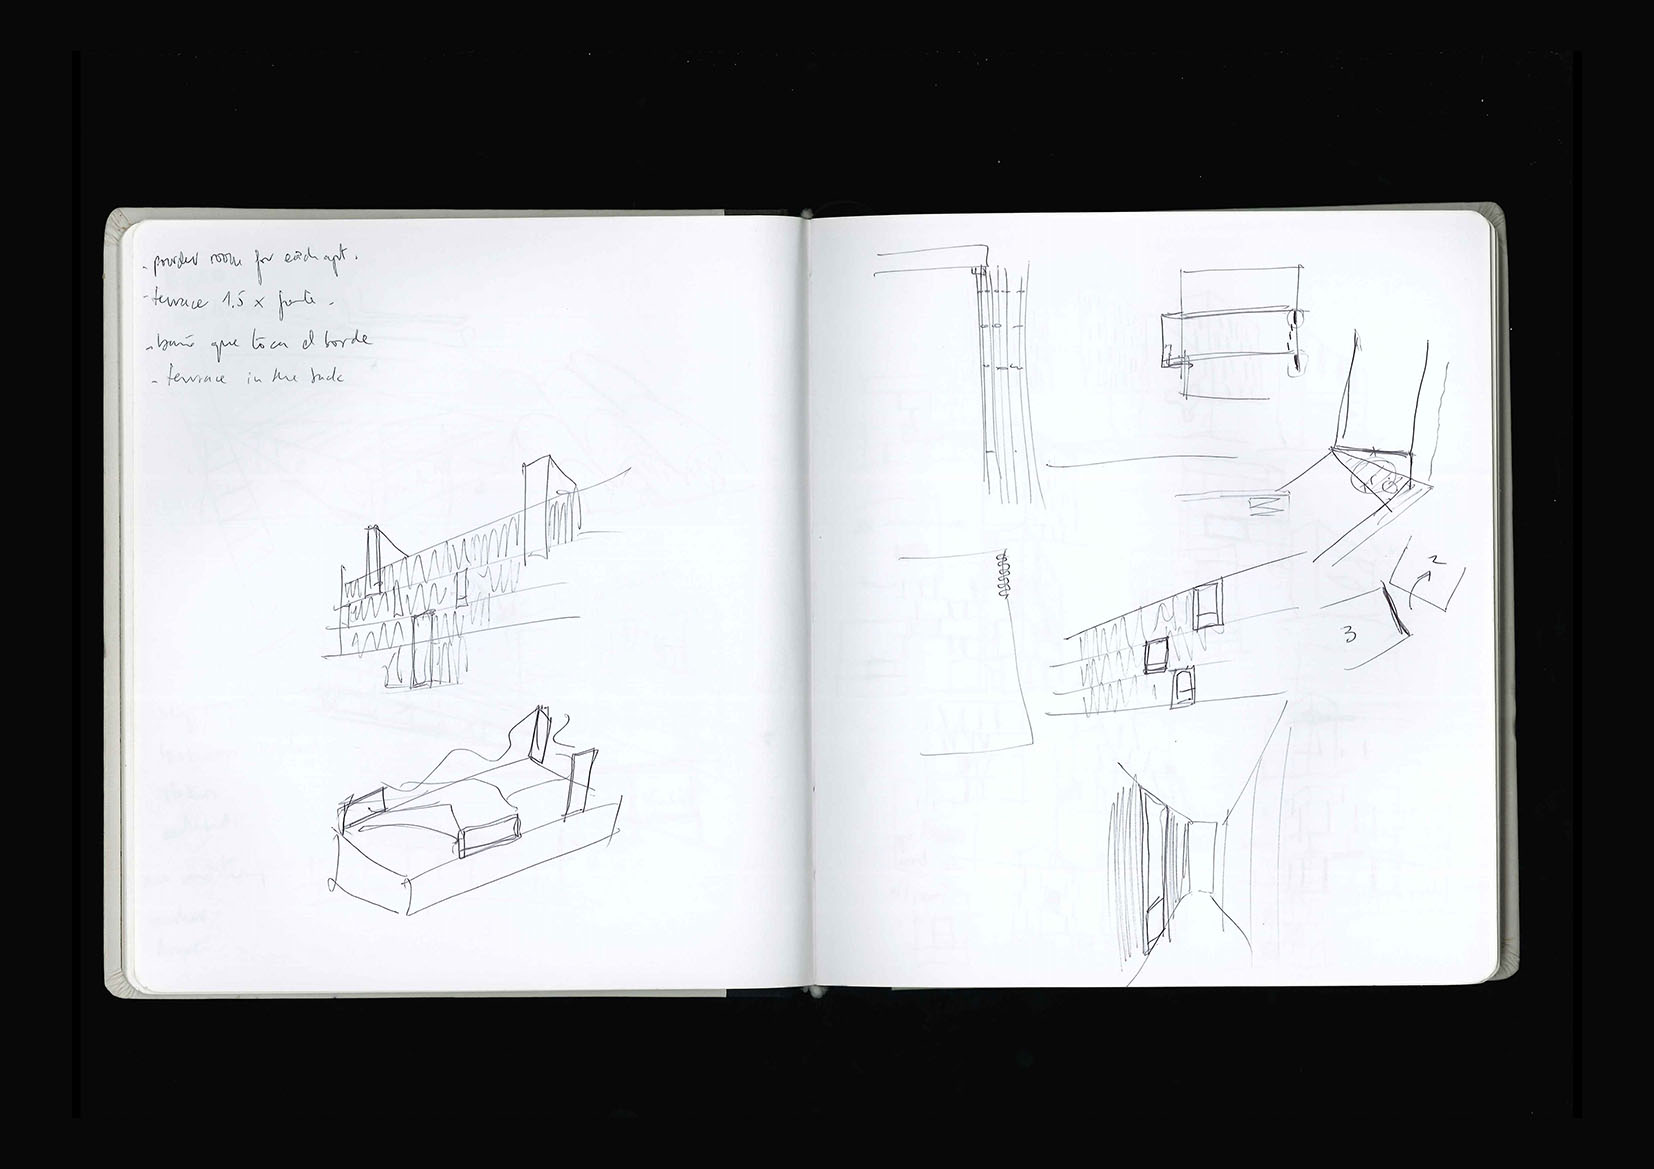 - powder room for each apt.
- terrace 1.5 x
- baño que toca el borde
- terrace in the back
2
3